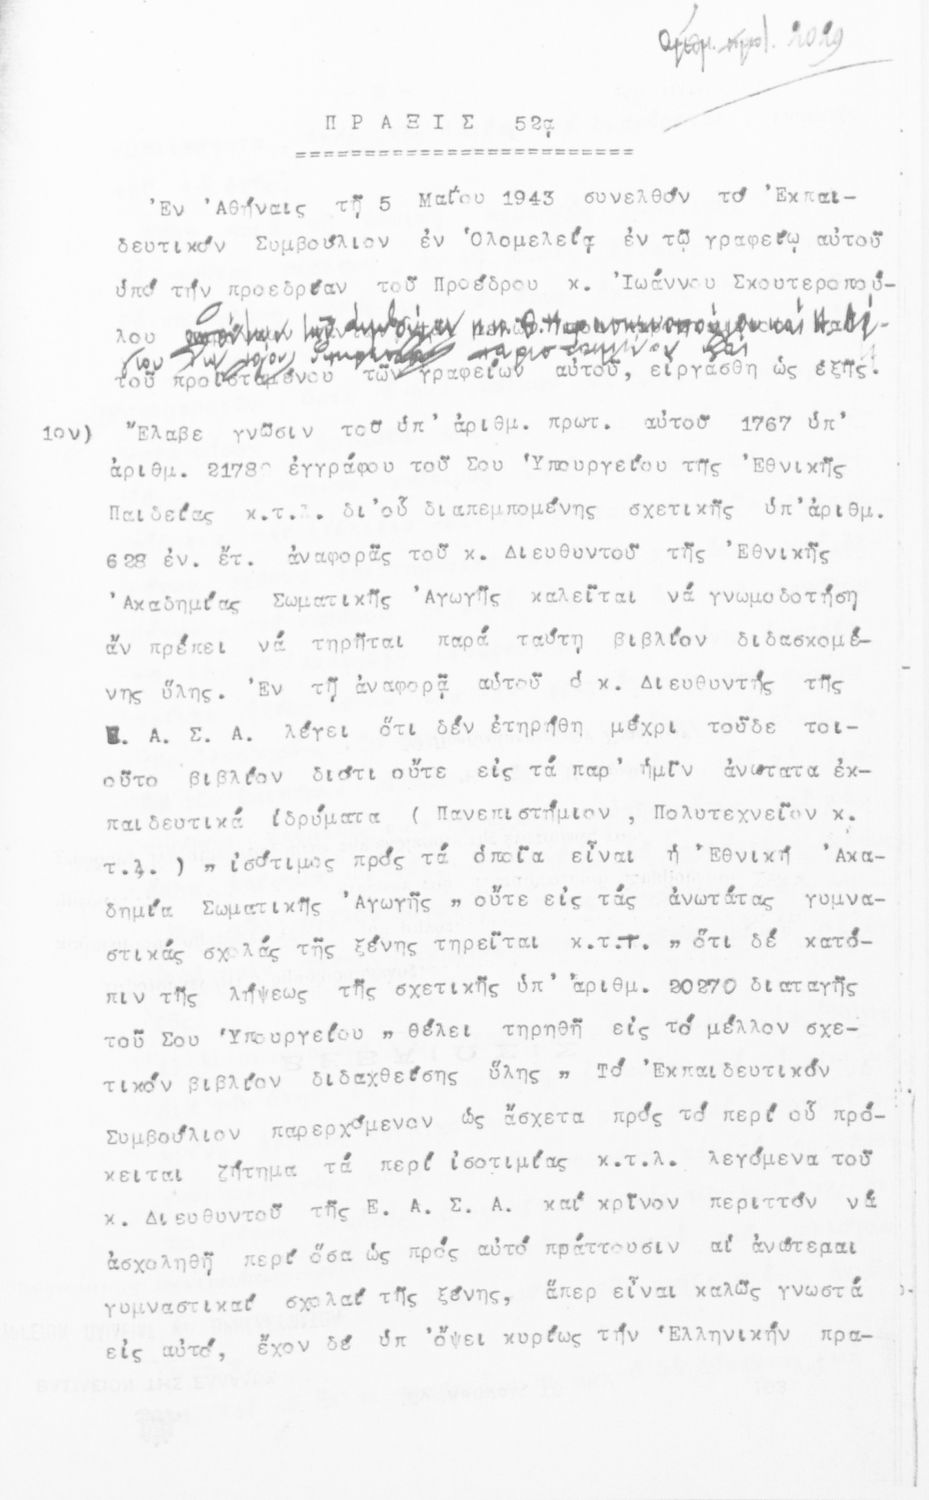 Ἀριθμ. πρωτ. 2029
ΠΡΑΞΙΣ 52ᾳ
=========================
Ἐν Ἀθήναις τῇ 5 Μαΐου 1943 συνελθόν τό Ἐκπαι-
δευτικόν Συμβούλιον ἐν Ὁλομελείᾳ ἐν τῷ γραφείῳ αὐτοῦ
ὑπό τήν προεδρίαν τοῦ Προέδρου κ. Ἰωάννου Σκουτεροπού-
λου
τοῦ προϊσταμένου τῶν γραφείων αὐτοῦ, εἰργάσθη ὡς ἑξῆς.
1ον) Ἔλαβε γνῶσιν τοῦ ὑπ' ἀριθμ. πρωτ. αὐτοῦ 1767 ὑπ'
ἀριθμ. 2178 ἐγγράφου τοῦ Σου Ὑπουργείου τῆς Ἐθνικῆς
Παιδείας κ.τ.λ. δι'οὗ διαπεμπομένης σχετικῆς ὑπ'ἀριθμ.
628 ἐν. ἔτ. ἀναφορᾶς τοῦ κ. Διευθυντοῦ τῆς Ἐθνικῆς
Ἀκαδημίας Σωματικῆς Ἀγωγῆς καλεῖται νά γνωμοδοτήση
ἄν πρέπει νά τηρῆται παρά ταύτη βιβλίον διδασκομέ-
νης ὕλης. Ἐν τῇ ἀναφορᾷ αὐτοῦ ὁ κ. Διευθυντής τῆς
Ε. Α. Σ. Α. λέγει ὅτι δέν ἐτηρήθη μέχρι τοῦδε τοι-
οῦτο βιβλίον διότι οὔτε εἰς τά παρ' ἡμῖν ἀνώτατα ἐκ-
παιδευτικά ἱδρύματα ( Πανεπιστήμιον , Πολυτεχνεῖον κ.
τ.λ. ) „ ἰσότιμος πρός τά ὁποῖα εἶναι ἡ Ἐθνική Ἀκα-
δημία Σωματικῆς Ἀγωγῆς „ οὔτε εἰς τάς ἀνωτάτας γυμνα-
στικάς σχολάς τῆς ξένης τηρεῖται κ.τ.τ. „ ὅτι δέ κατό-
πιν τῆς λήψεως τῆς σχετικῆς ὑπ' ἀριθμ. 20270 διαταγῆς
τοῦ Σου Ὑπουργείου „ θέλει τηρηθῆ εἰς τό μέλλον σχε-
τικόν βιβλίον διδαχθείσης ὕλης „ Τό Ἐκπαιδευτικόν
Συμβούλιον παρερχόμενον ὡς ἄσχετα πρός τό περί οὗ πρό-
κειται ζήτημα τά περί ἰσοτιμίας κ.τ.λ. λεγόμενα τοῦ
κ. Διευθυντοῦ τῆς Ε. Α. Σ. Α. καί κρῖνον περιττόν νά
ἀσχοληθῇ περί ὅσα ὡς πρός αὐτό πράττουσιν αἱ ἀνώτεραι
γυμναστικαί σχολαί τῆς ξένης, ἅπερ εἶναι καλῶς γνωστά
εἰς αὐτό, ἔχον δέ ὑπ 'ὄψει κυρίως τήν Ἑλληνικήν πρα-